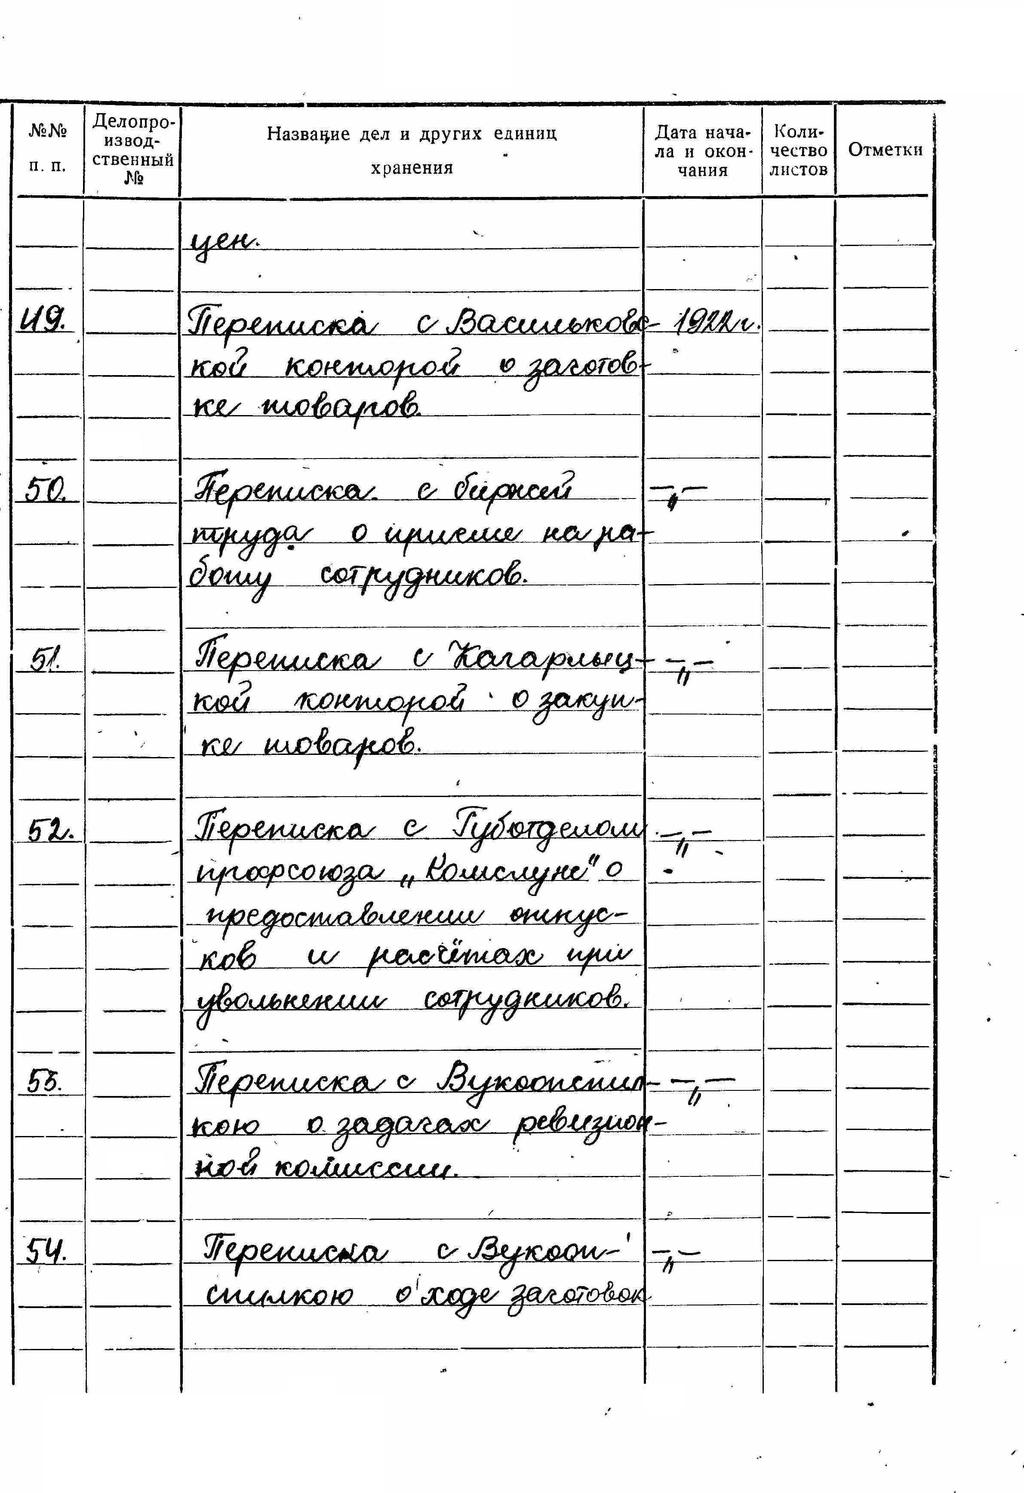 №№ п. п.
Делопро-
извод-
ственный
№
Название дел и других единиц
хранения
Дата нача-
ла и окон-
чания
Коли-
чество
листов
Отметки
цен.
49. Переписка с Васильковс- 1922 г.
кой конторой о заготов-
ке товаров.
50. Переписка с биржей —〃—
труда о приеме на ра-
боту сотрудников.
51. Переписка с Кагарлыц- —〃—
кой конторой о закуп-
ке товаров.
52. Переписка с Губотделом —〃—
профсоюза „Комслуж" о
предоставлении отпус-
ков и расчётах при
увольнении сотрудников.
53. Переписка с Вукоопспил- —〃—
кою о задачах ревизион-
ной комиссии.
54. Переписка с Вукооп- —〃—
спилкою о ходе заготовок